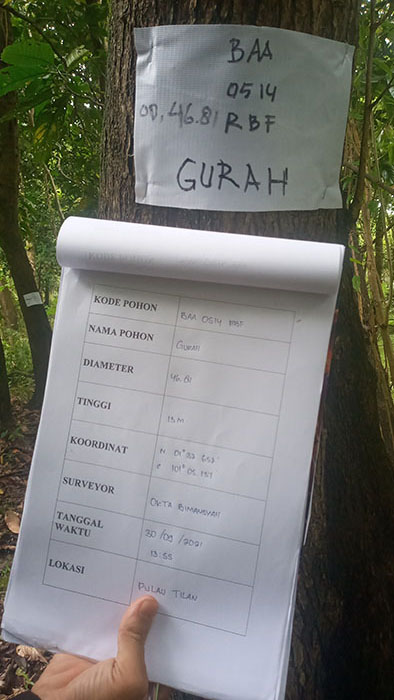 BAA
0514
OD, 46.81 RBF
GURAH
KODE POHON BAA 0514 RBF
NAMA POHON GURAH
DIAMETER 46.81
TINGGI 13 m
KOORDINAT
N 01°
E 101°
SURVEYOR OKTA BIMANSYAH
TANGGAL 30/09/2021
WAKTU 13:55
LOKASI PULAU TILAN